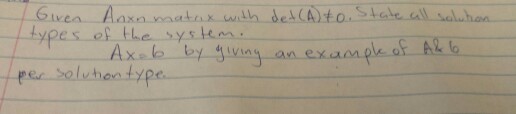 Given Anxn matrix with det(A)≠0. State all solution
types of the system.
Ax=b by giving an example of A& b
per solution type